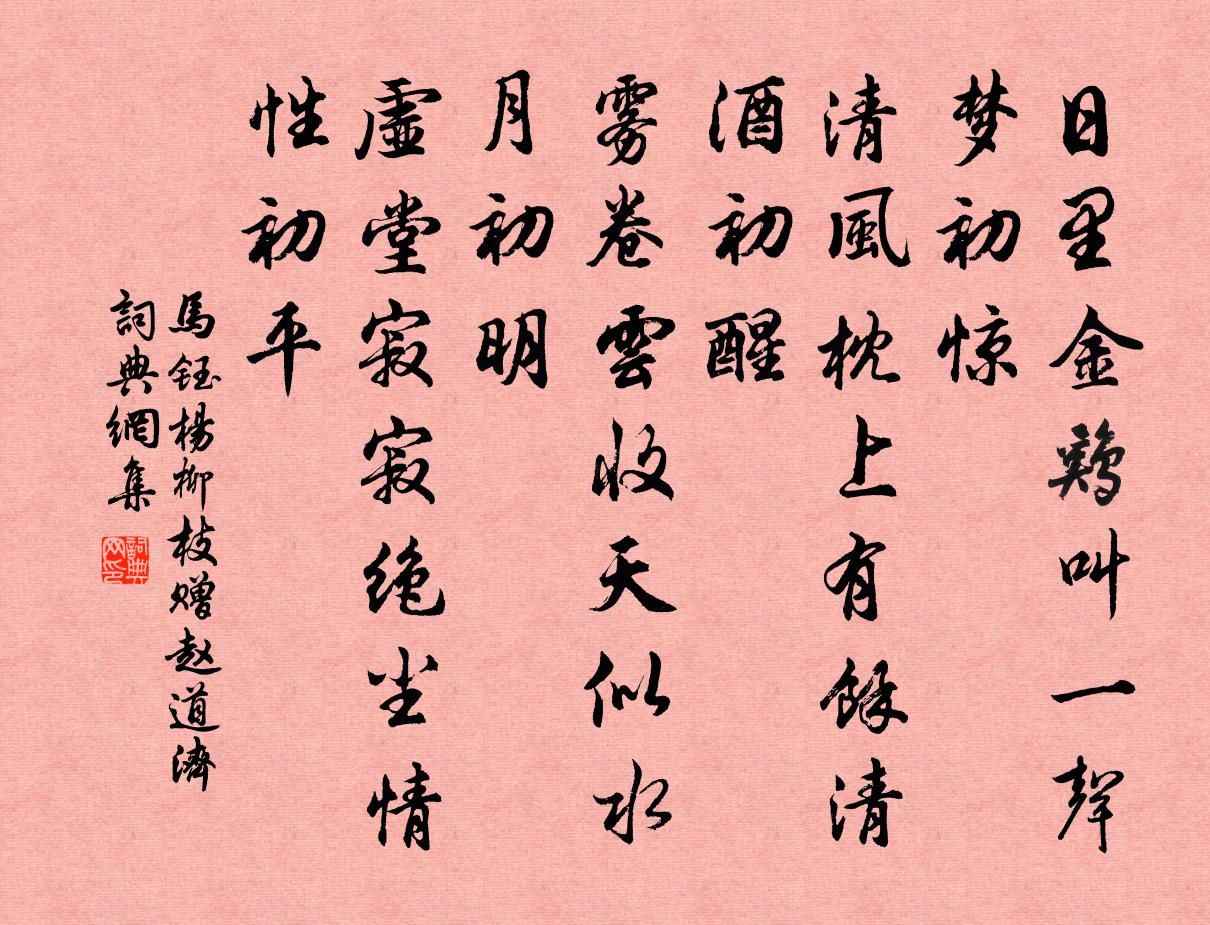 日里金鷄叫一聲
梦初惊
清風枕上有餘清
酒初醒
雾卷雲收天似水
月初明
虛堂寂寂绝尘情
性初平
馬钰楊柳枝赠赵道濟
詞典網集
詞典网印